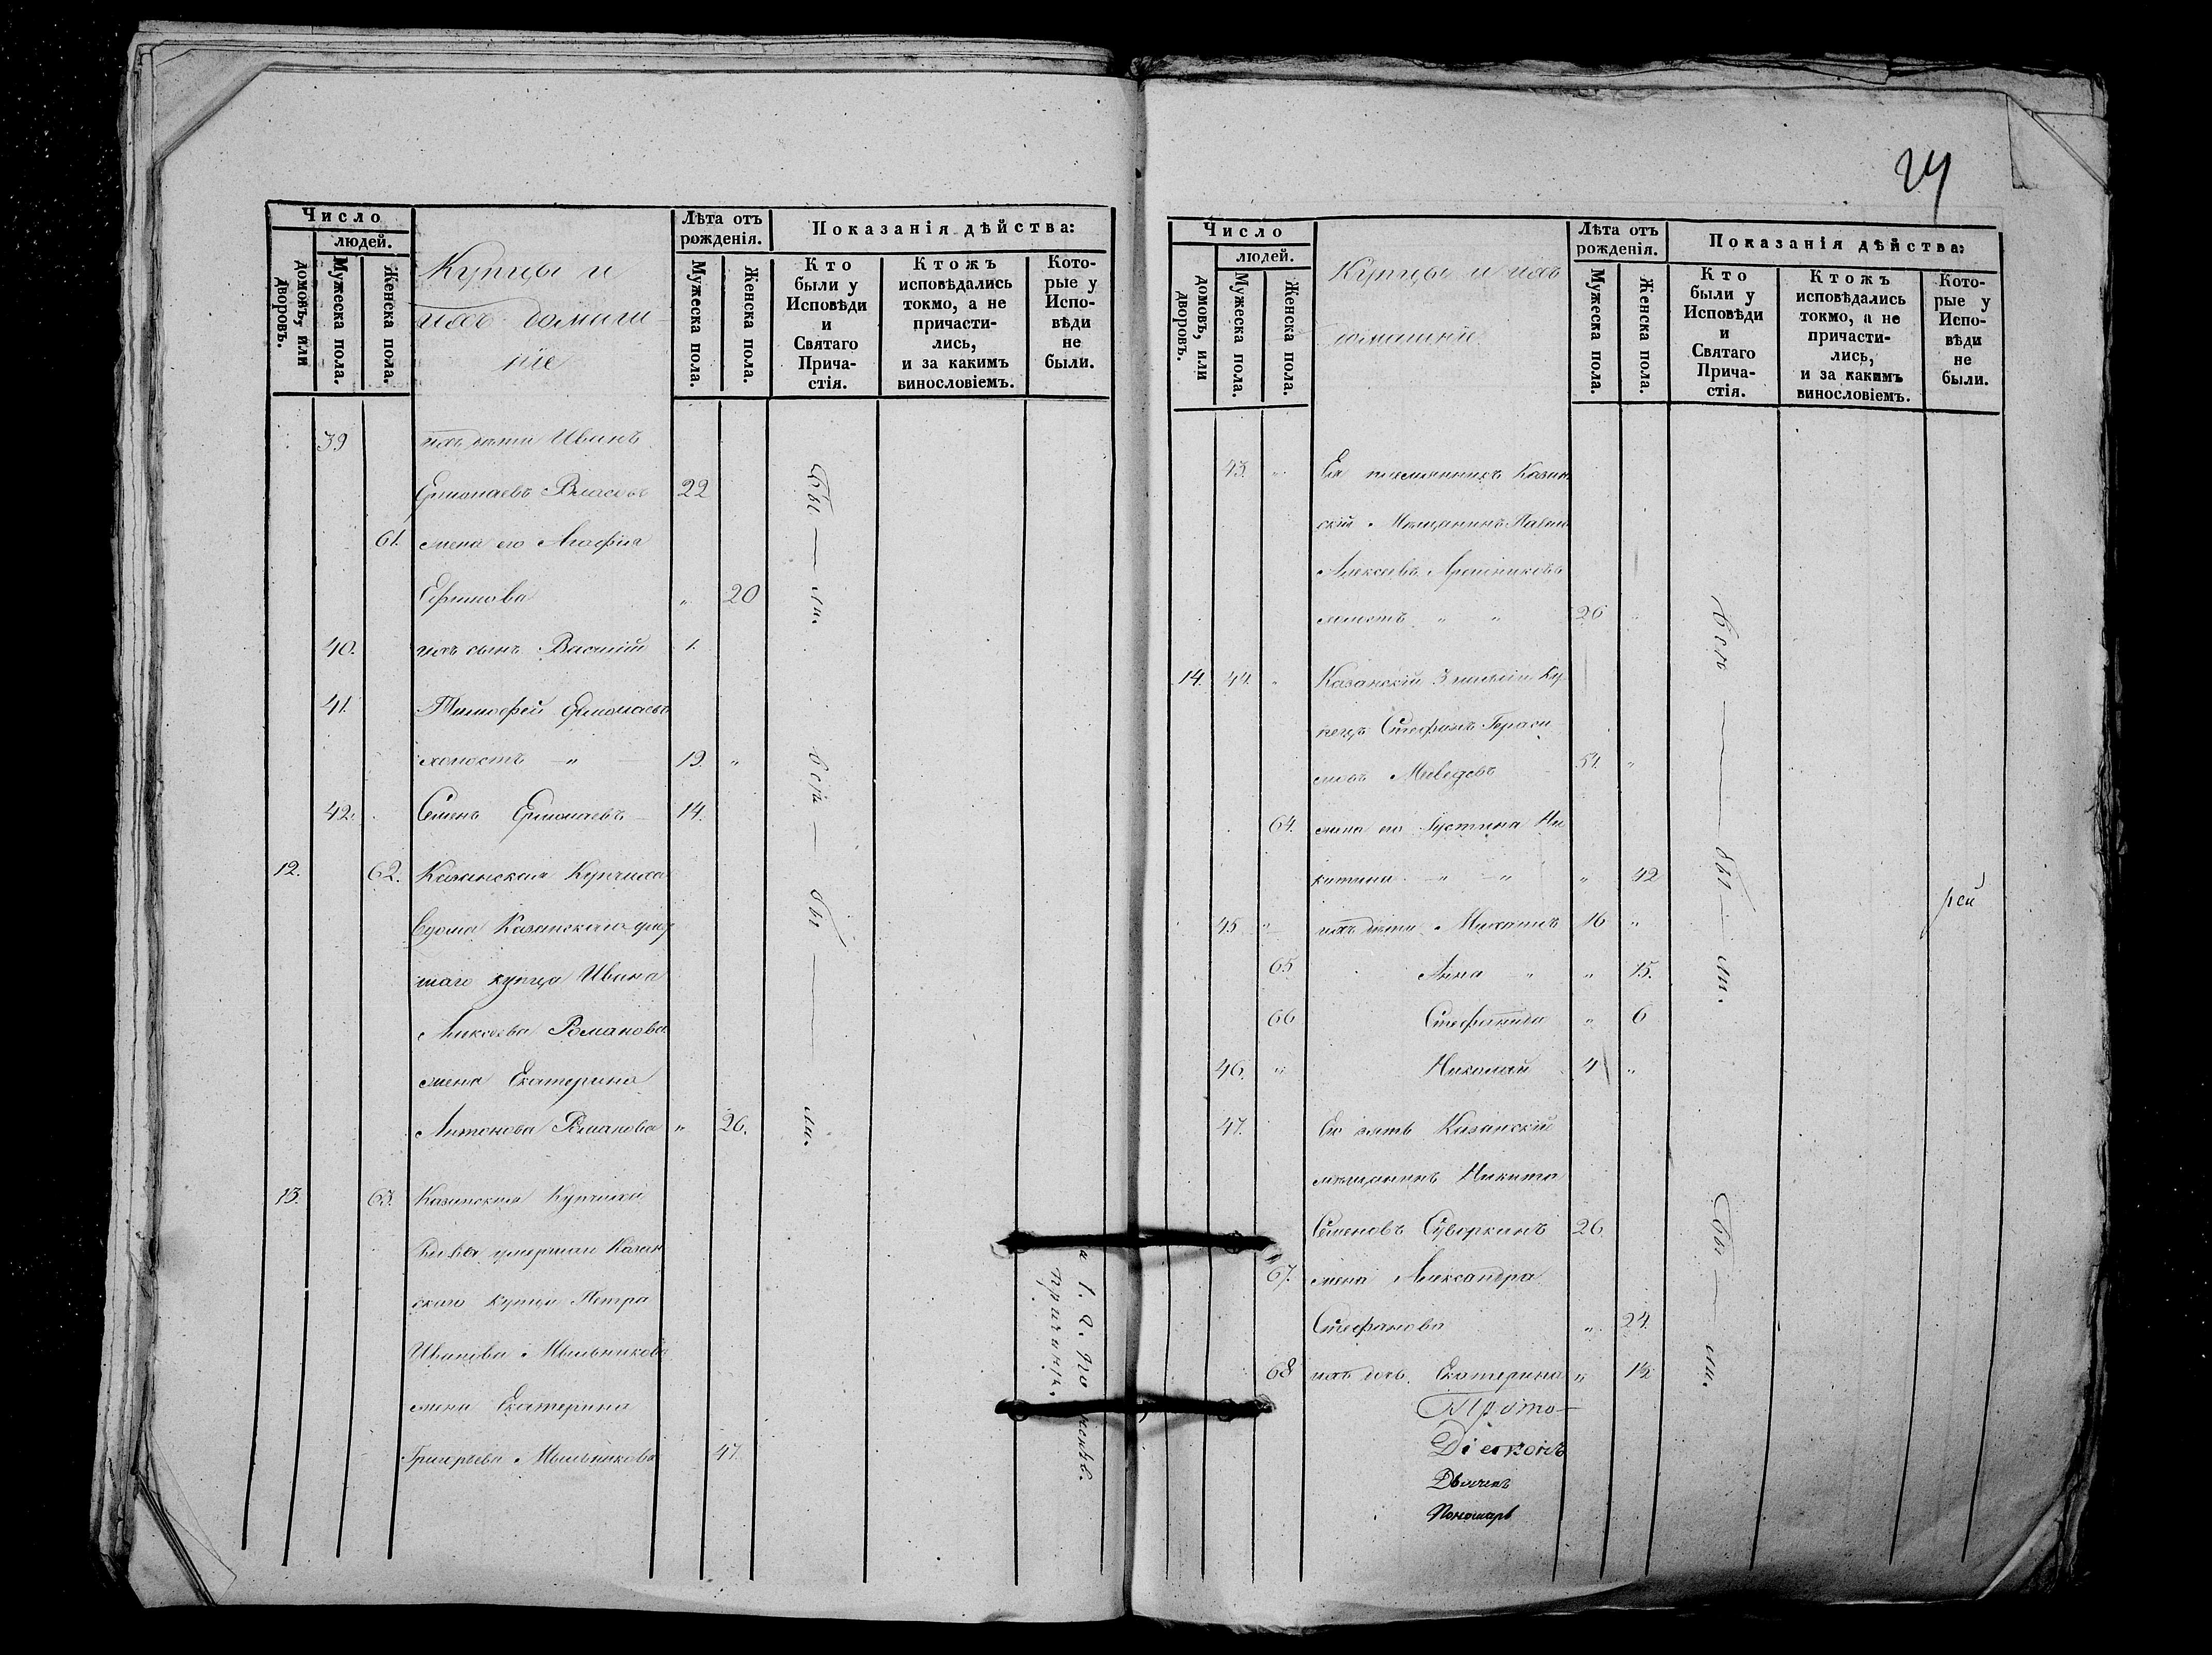 Число
людей.
домовъ, или дворовъ.
Мужеска пола.
Женска пола.
Купцы и
ихъ домаш-
ніе
Лѣта отъ рожденія.
Мужеска пола.
Женска пола.
Показанія дѣйства:
Кто были у Исповѣди и Святаго Прича- стія.
Ктожъ исповѣдались токмо, а не причасти- лись, и за какимъ винословіемъ.
Кото- рые у Испо- вѣди не были.
39 ихъ дѣти Иванъ
Ермолаевъ Власовъ 22
61. жена его Агафія
Ефимова " 20
бы — ли.
40. ихъ сынъ Василій 1.
41. Тимофей Ермолаевъ
холостъ — " — 19. "
42. Семенъ Ермолаевъ — 14.
всѣ — бы — ли.
12. 62. Казанская Купчиха
вдова Казанскаго умер
шаго купца Ивана
Алексѣева Романова
жена Екатерина
Антонова Романова " 26.
13. 63. Казанская Купчиха
умершаго Казан
скаго купца Петра
Иванова Мыльникова
жена Екатерина
Григорьева Мыльникова 47.
причинѣ.
24
Число
людей.
домовъ, или дворовъ.
Мужеска пола.
Женска пола.
Купцы и ихъ
домашніе
Лѣта отъ рожденія.
Мужеска пола.
Женска пола.
Показанія дѣйства:
Кто были у Исповѣди и Святаго Прича- стія.
Ктожъ исповѣдались токмо, а не причасти- лись, и за какимъ винословіемъ.
Кото- рые у Испо- вѣди не были.
43. " Ея племянникъ Казан
скій Мѣщанинъ Павелъ
Алексѣевъ
холостъ " " 26 "
14. 44. " Казанскій 3 гильдіи Ку-
пецъ Стефанъ Гераси
мовъ 54. "
64. жена его Іустина Ни
китина — " — " " 42
45 " ихъ дѣти Михаилъ 16 "
65 Анна — " " 15.
66 Стефанида " 6
46. " Николай 4 "
всѣ — бы — ли.
47. Его зять Казанскій
мѣщанинъ Никита
Семеновъ Суворкинъ 26
67. жена Александра
Стефанова " 24.
68 ихъ дочь Екатерина "
бы — ли.
рей
Прото-
Діаконъ
Дьячекъ
Пономарь